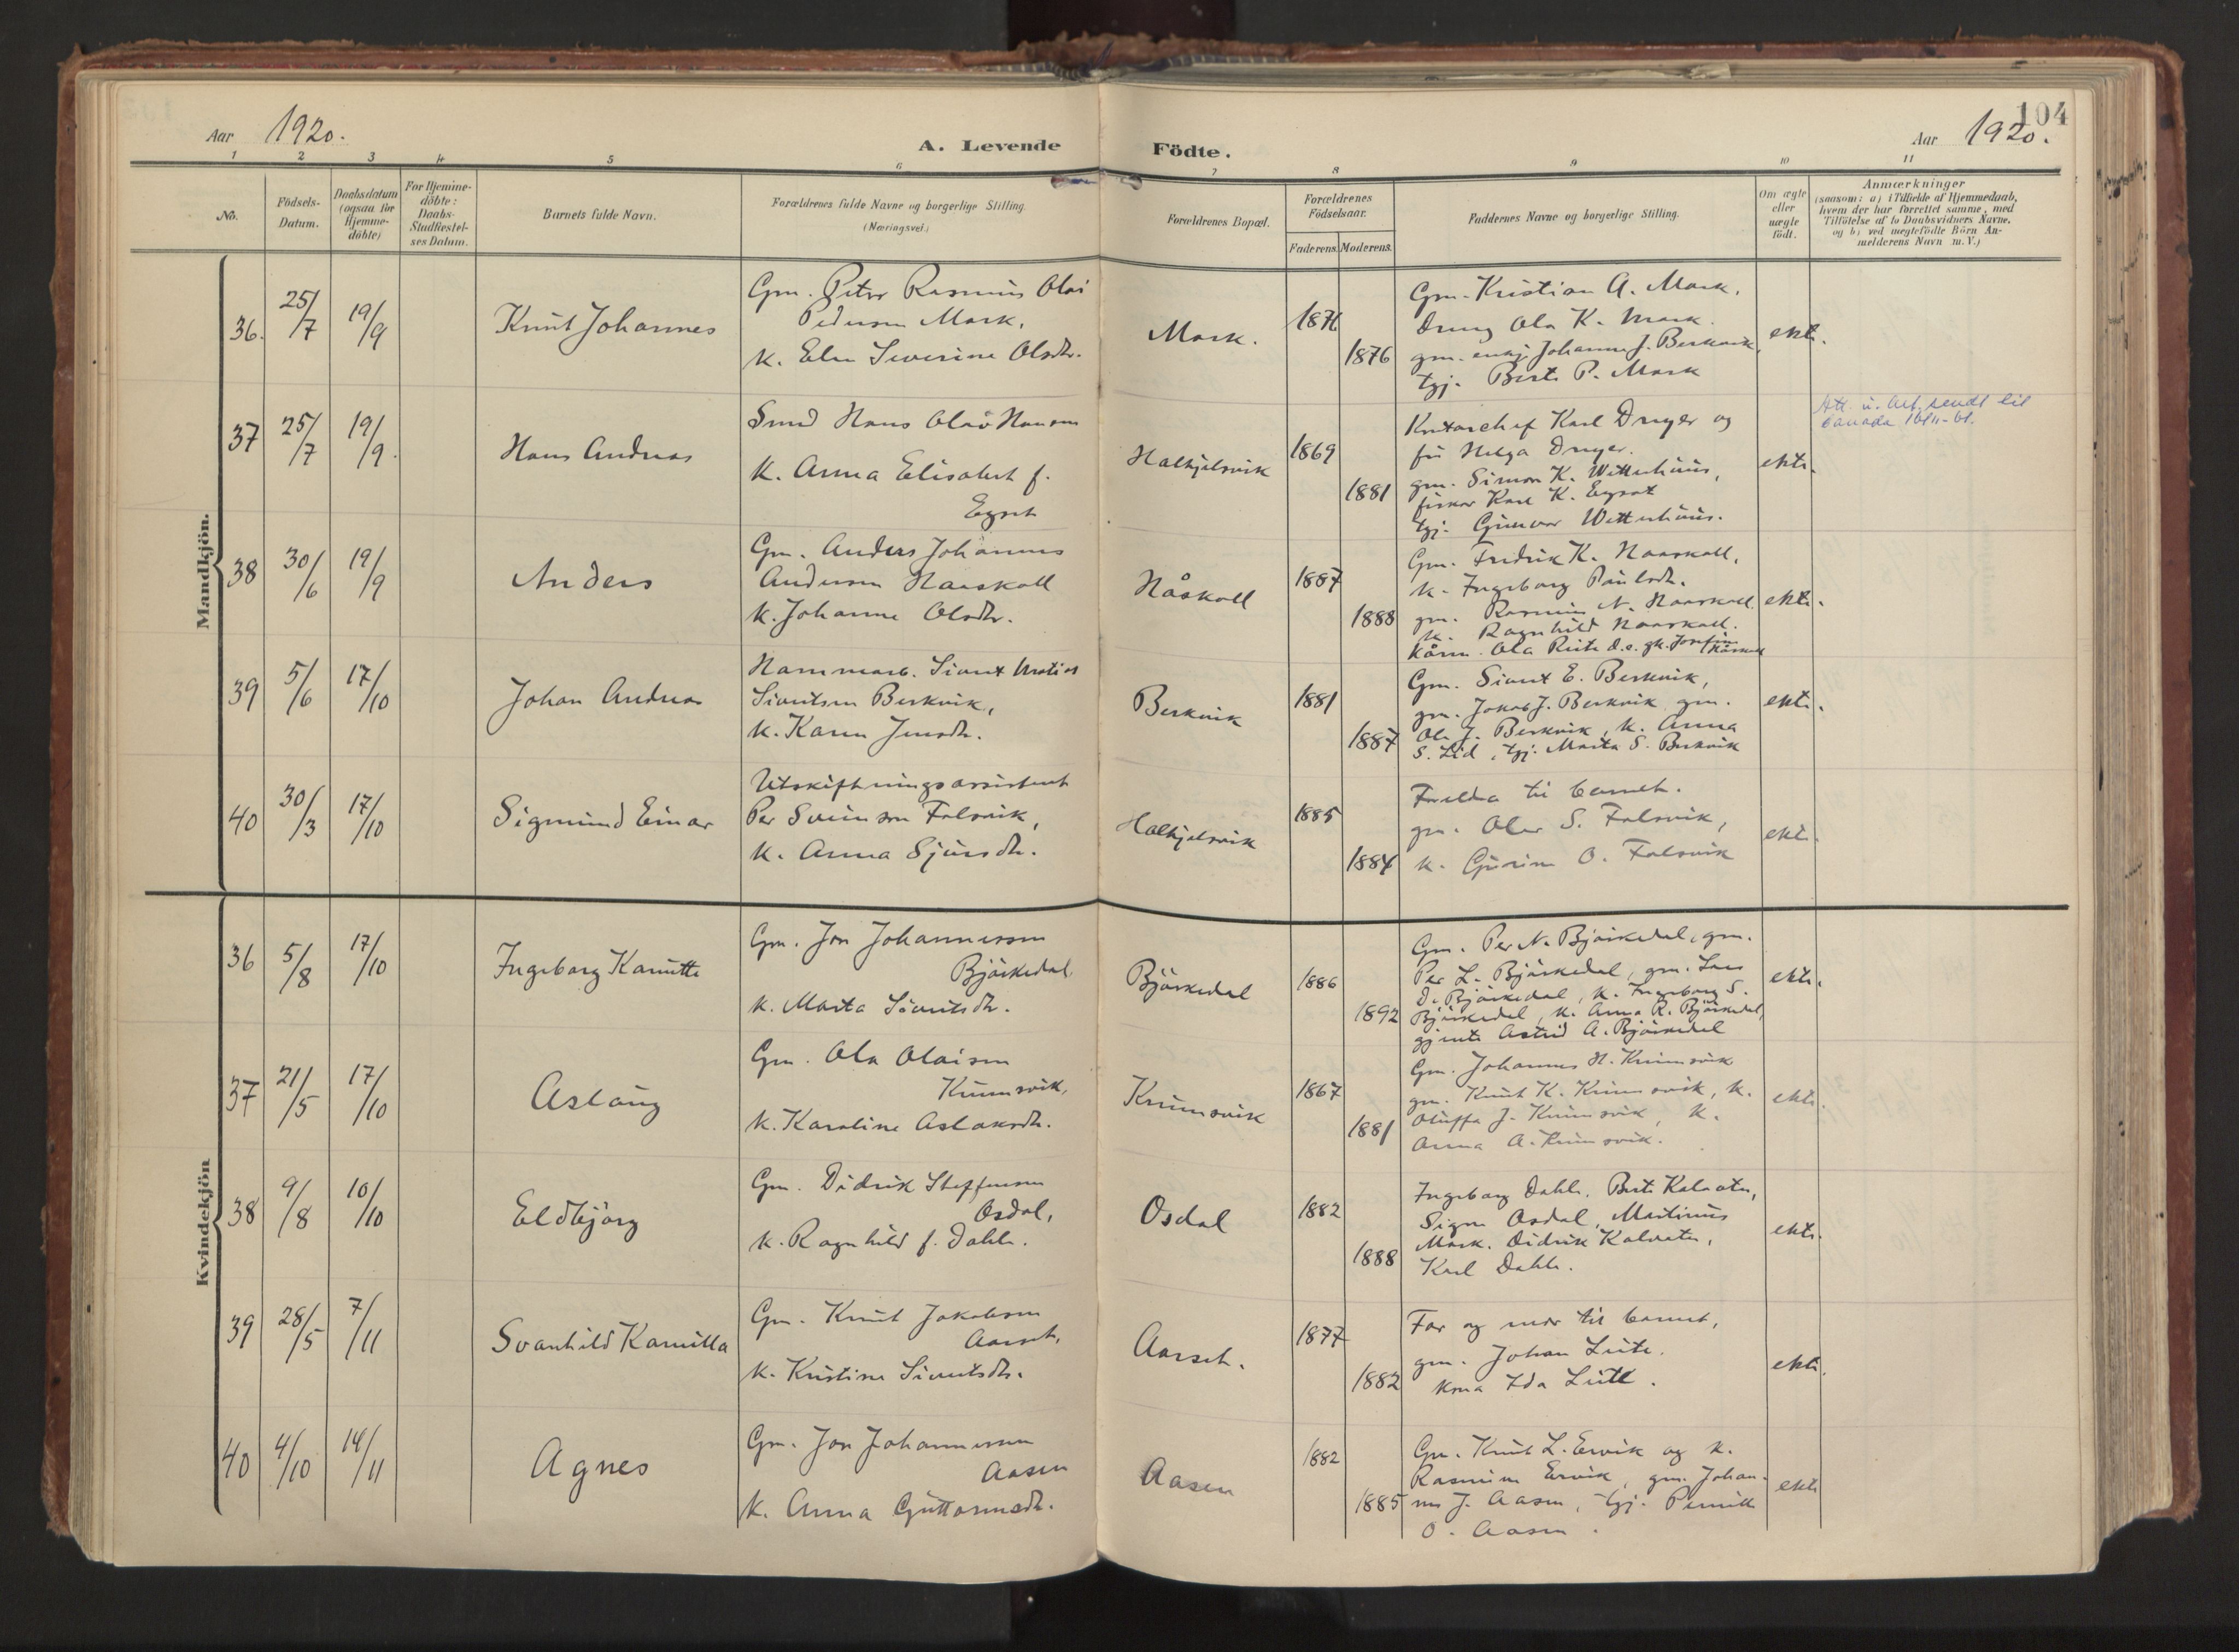 104
Aar 1920.
A. Levende Födte.
Aar 1920.
1 2 3 4 5 6 7 8 9 10 11
No.
Födsels-
Datum.
Daabsdatum
(ogsaa for
Hjemme-
döbte)
For Hjemme-
döbte:
Daabs-
Stadfæstel-
ses Datum.
Barnets fulde Navn.
Forældrenes fulde Navne og borgerlige Stilling
(Næringsvei.)
Forældrenes Bopæl.
Forældrenes
Födselsaar.
Faderens. Moderens.
Faddernes Navne og borgerlige Stilling.
Om ægte
eller
uægte
födt.
Anmærkninger
(saasom: a) i Tilfælde af Hjemmedaab,
hvem der har forrettet samme, med
Tilföielse af to Daabsvidners Navne.
og b) ved uegtefödte Börn An-
melderens Navn m.V.)
Mandkjön.
36. 25/7 19/9
Knut Johannes
Gm. Peter Rasmus Olai
Pedersen Mork.
k. Elen Severine Olsdtr.
Mork.
1876
1876
Gm. Kristian A. Mork,
dreng Ola K. Mork.
gm. enkje Johanne J. Berkvik,
tgj. Berte P. Mork
ekte.
37 25/7 19/9.
Hans Andreas
Smed Hans Olav Hansen
k. Anna Elisabet f.
Egset
Halkjelsvik
1869
1881
Kontorchef Karl Dreyer og
fru Helga Dreyer.
gm. Simon K. Wetterhuus,
fisker Karl K. Egset
tgj. Gunvor Wetterhuus.
ekte.
Att. u. sendt til
Canada 16/11-61.
38 30/6 19/9
Anders
Gm. Anders Johannes
Andersen Haaskoll
k. Johanne Olsdtr.
Håskoll
1887
1888
Gm. Fredrik K. Haaskoll,
k. Ingeborg Paulsdtr.
gm. Rasmus N. Haaskoll
k. Ragnhild Haaskoll.
Ola
ekte.
39 5/6 17/10
Johan Andreas
Sivert Matias
Sivertsen Berkvik,
k. Karen Jensdtr.
Berkvik
1881
1887
Gm. Sivert E. Berkvik,
gm. Jakob J. Berkvik, gm.
Ole J. Berkvik, k. Anna
S. Lid, tgj. Marta S. Berkvik
ekte.
40 30/3 17/10
Sigmund Einar
Utskiftningsassistent
Per Sveinson Folsvik,
k. Anna Sjursdtr.
Halkjelsvik
1885
1884
Foreldra til barnet.
gm. Olav S. Folsvik,
k. Gurine O. Folsvik
ekte.
Kvindekjön
36 5/8 17/10
Ingeborg Kamitte
Gm. Jon Johannesson
Björkedal.
k. Marta Sivertsdtr.
Björkedal
1886
1892
Gm. Per N. Björkedal, gm.
Per L. Björkedal, gm. Lars
D. Björkedal, k. Ingeborg S.
Björkedal, k. Anna R. Björkedal,
gjente Astrid A. Björkedal
ekte.
37 21/5 17/10
Aslaug
Gm. Ola Olaisen
Krumsvik,
k. Karoline Aslaksdtr.
Krumsvik
1867
1881
Gm. Johannes H. Krumsvik
gm. Knut K. Krumsvik, k.
Oluffa J. Krumsvik, k.
Anna A. Krumsvik.
ekte.
38 9/8 10/10
Eldbjörg
Gm. Didrik Steffensen
Osdal,
k. Ragnhild f. Dahle.
Osdal
1882
1888
Ingeborg Dahle. Berte Kalvatn,
Signe Osdal, Martinus
Mork. Didrik Kalvatn,
Karl Dahle.
ekte.
39 28/5 7/11
Svanhild Kamilla
Gm. Knut Jakobsen
Aarset,
k. Kristine Sivertsdtr.
Aarset.
1877
1882
Far og mor til barnet,
gm. Johan Leite.
kona Ida Leite.
ekte.
40 4/10 14/11
Agnes
Gm. Jon Johannessen
Aasen
k. Anna Guttormsdtr.
Aasen
1882
1885
Gm. Knut L. Ervik og k.
Rasmine Ervik, gm. Johan-
nes J. Aasen, tgj. Pernille
O. Aasen.
ekte